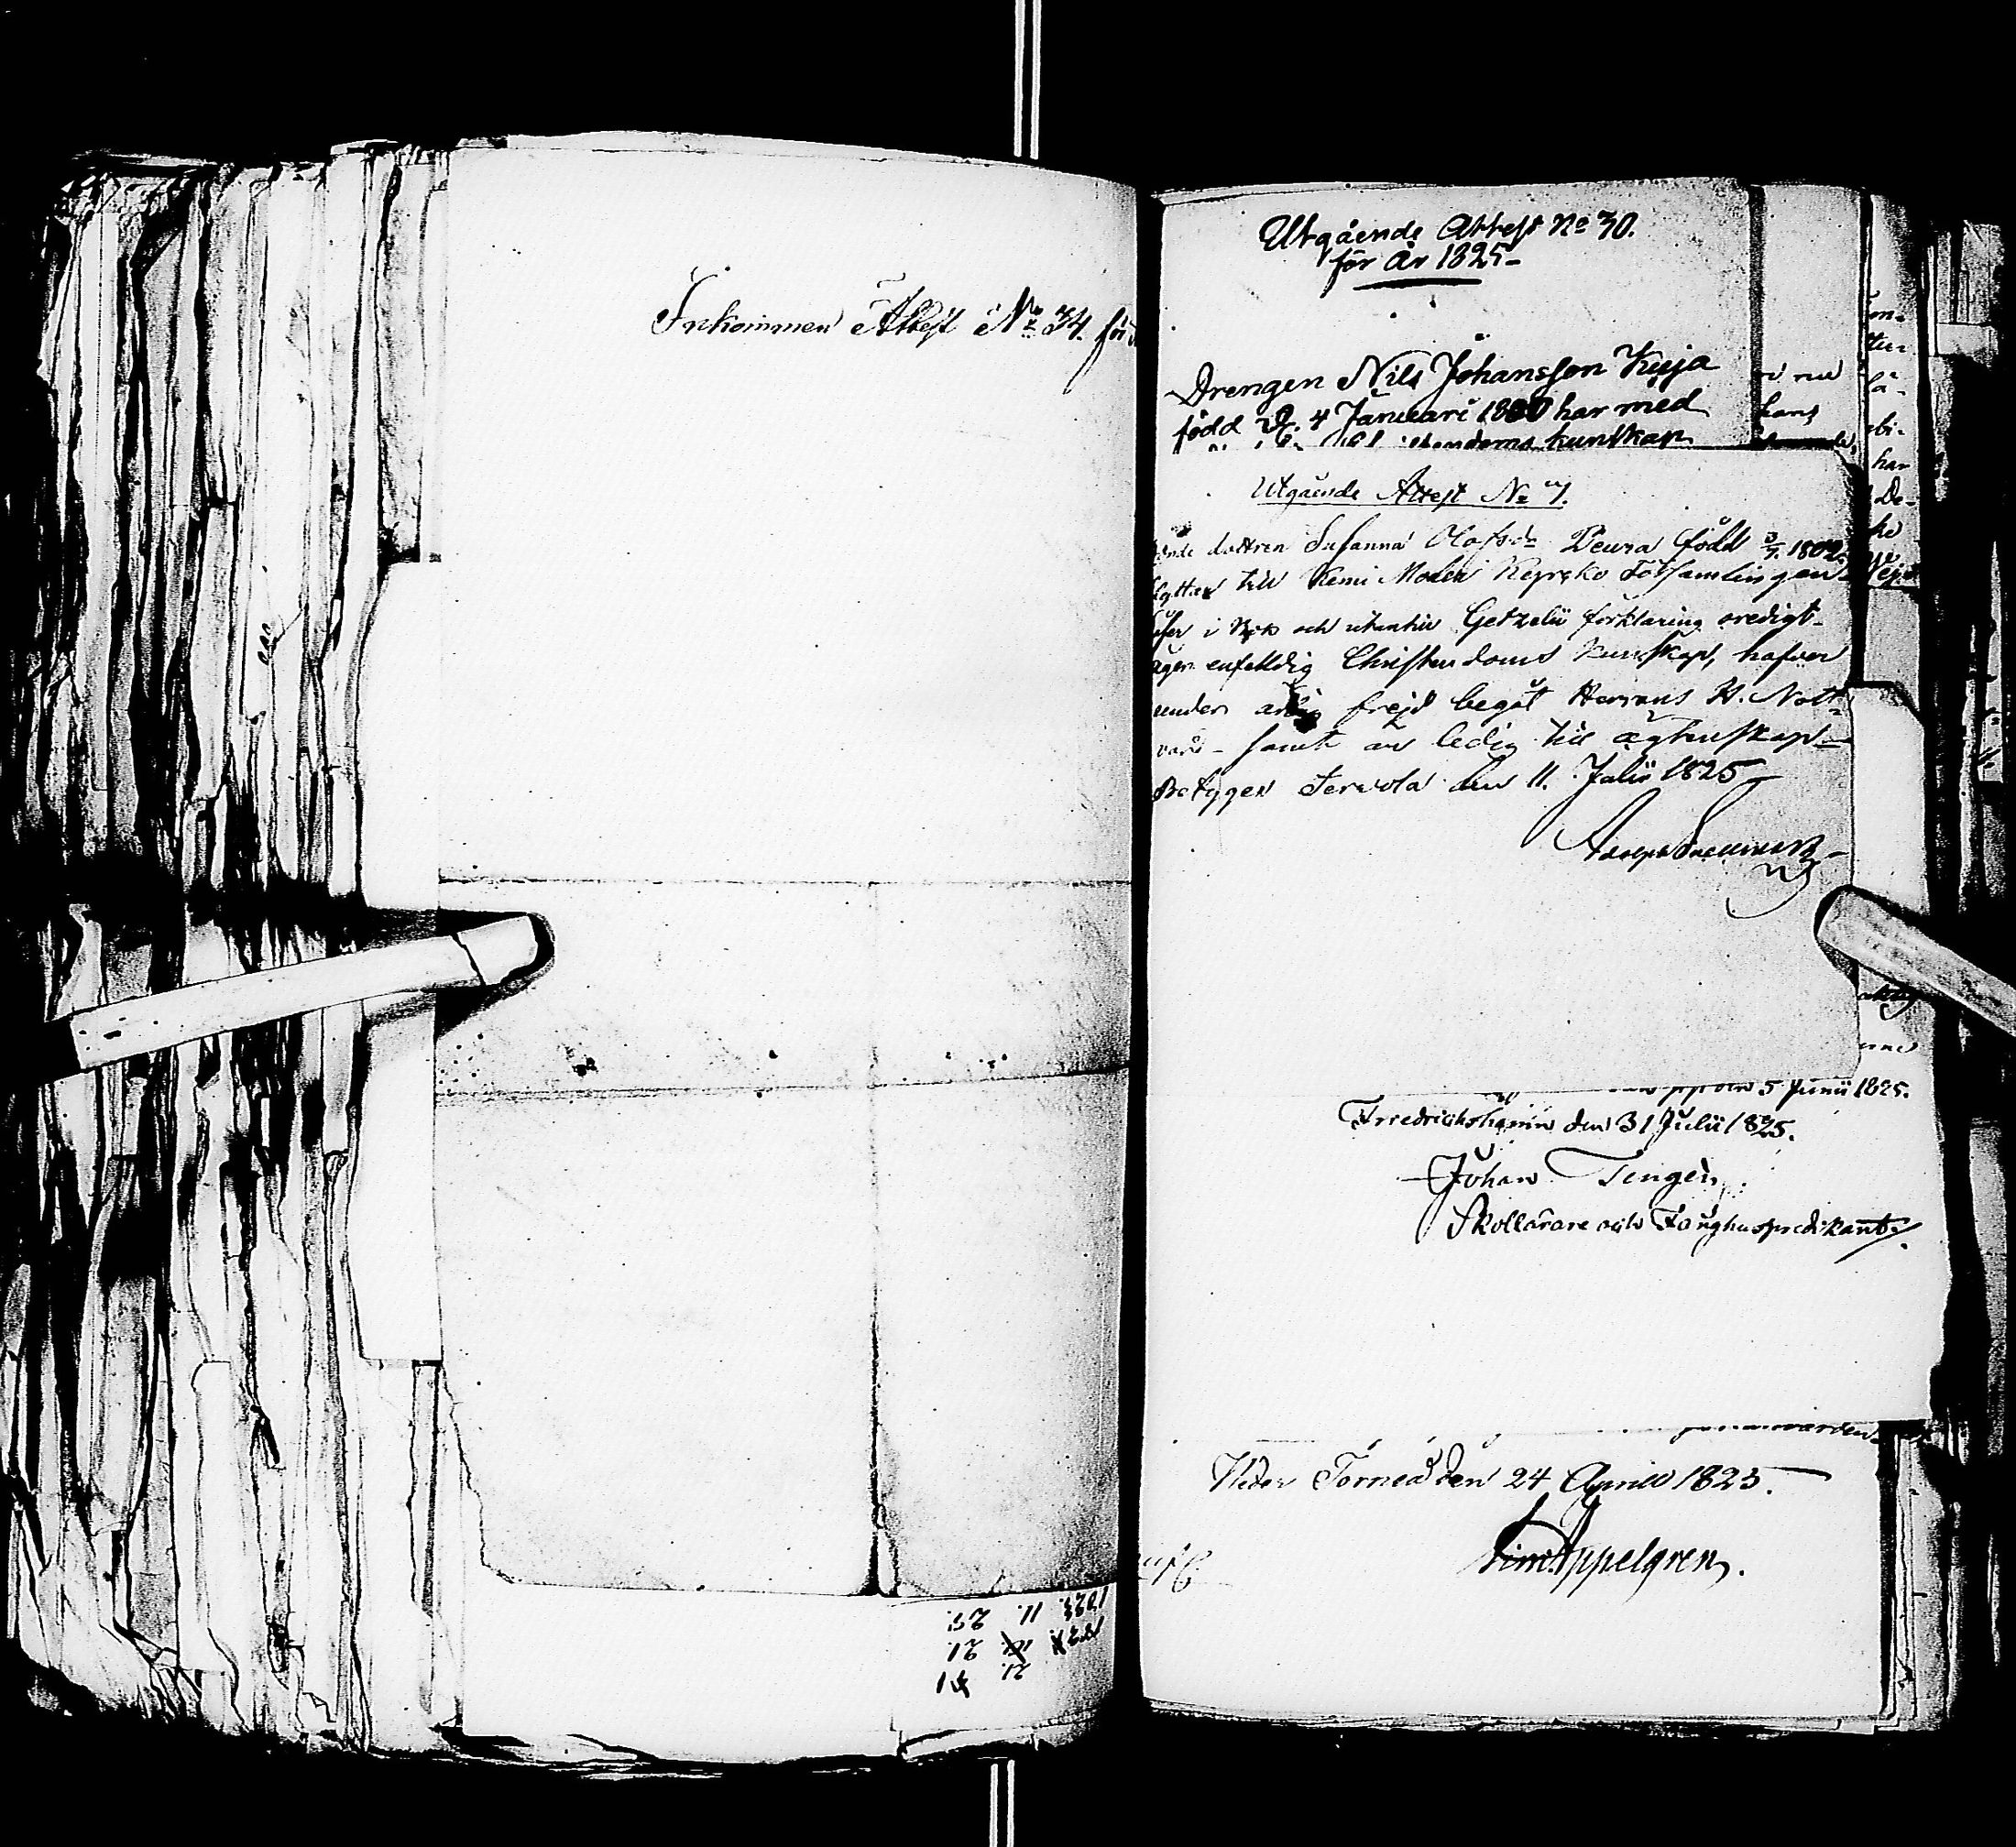 Inkommen Attest No 34. för
1823. 11. 25.
21
21. 14
Utgående Attest No 30.
för år 1825-
Drengen Nils Johansson Kuja
född d. 4 Januari 1800 har med
kunskap
Utgående Attest No 7.
dottren Susanna Olofsdr Peura född 1802
till Kemi Moder Kyrcko Församlingen
i Bok och utantill Getzelii förklaring oredigt
äger enfaldig Christendoms kunskap, hafver
under ärlig frejd begåt Herrans H. Natt-
vard - samt är ledig till ägtenskap-
Betyger Tervola den 11. Julii 1825
Adolph
5 Junii 1825.
Friedrichshamn den 31 Julii 1825.
Johan Tengén
Skollärare och Fånghuspredikant.
Neder Torneå den 24 Aprill 1825.
Sim. Appelgren.
han
har
De-